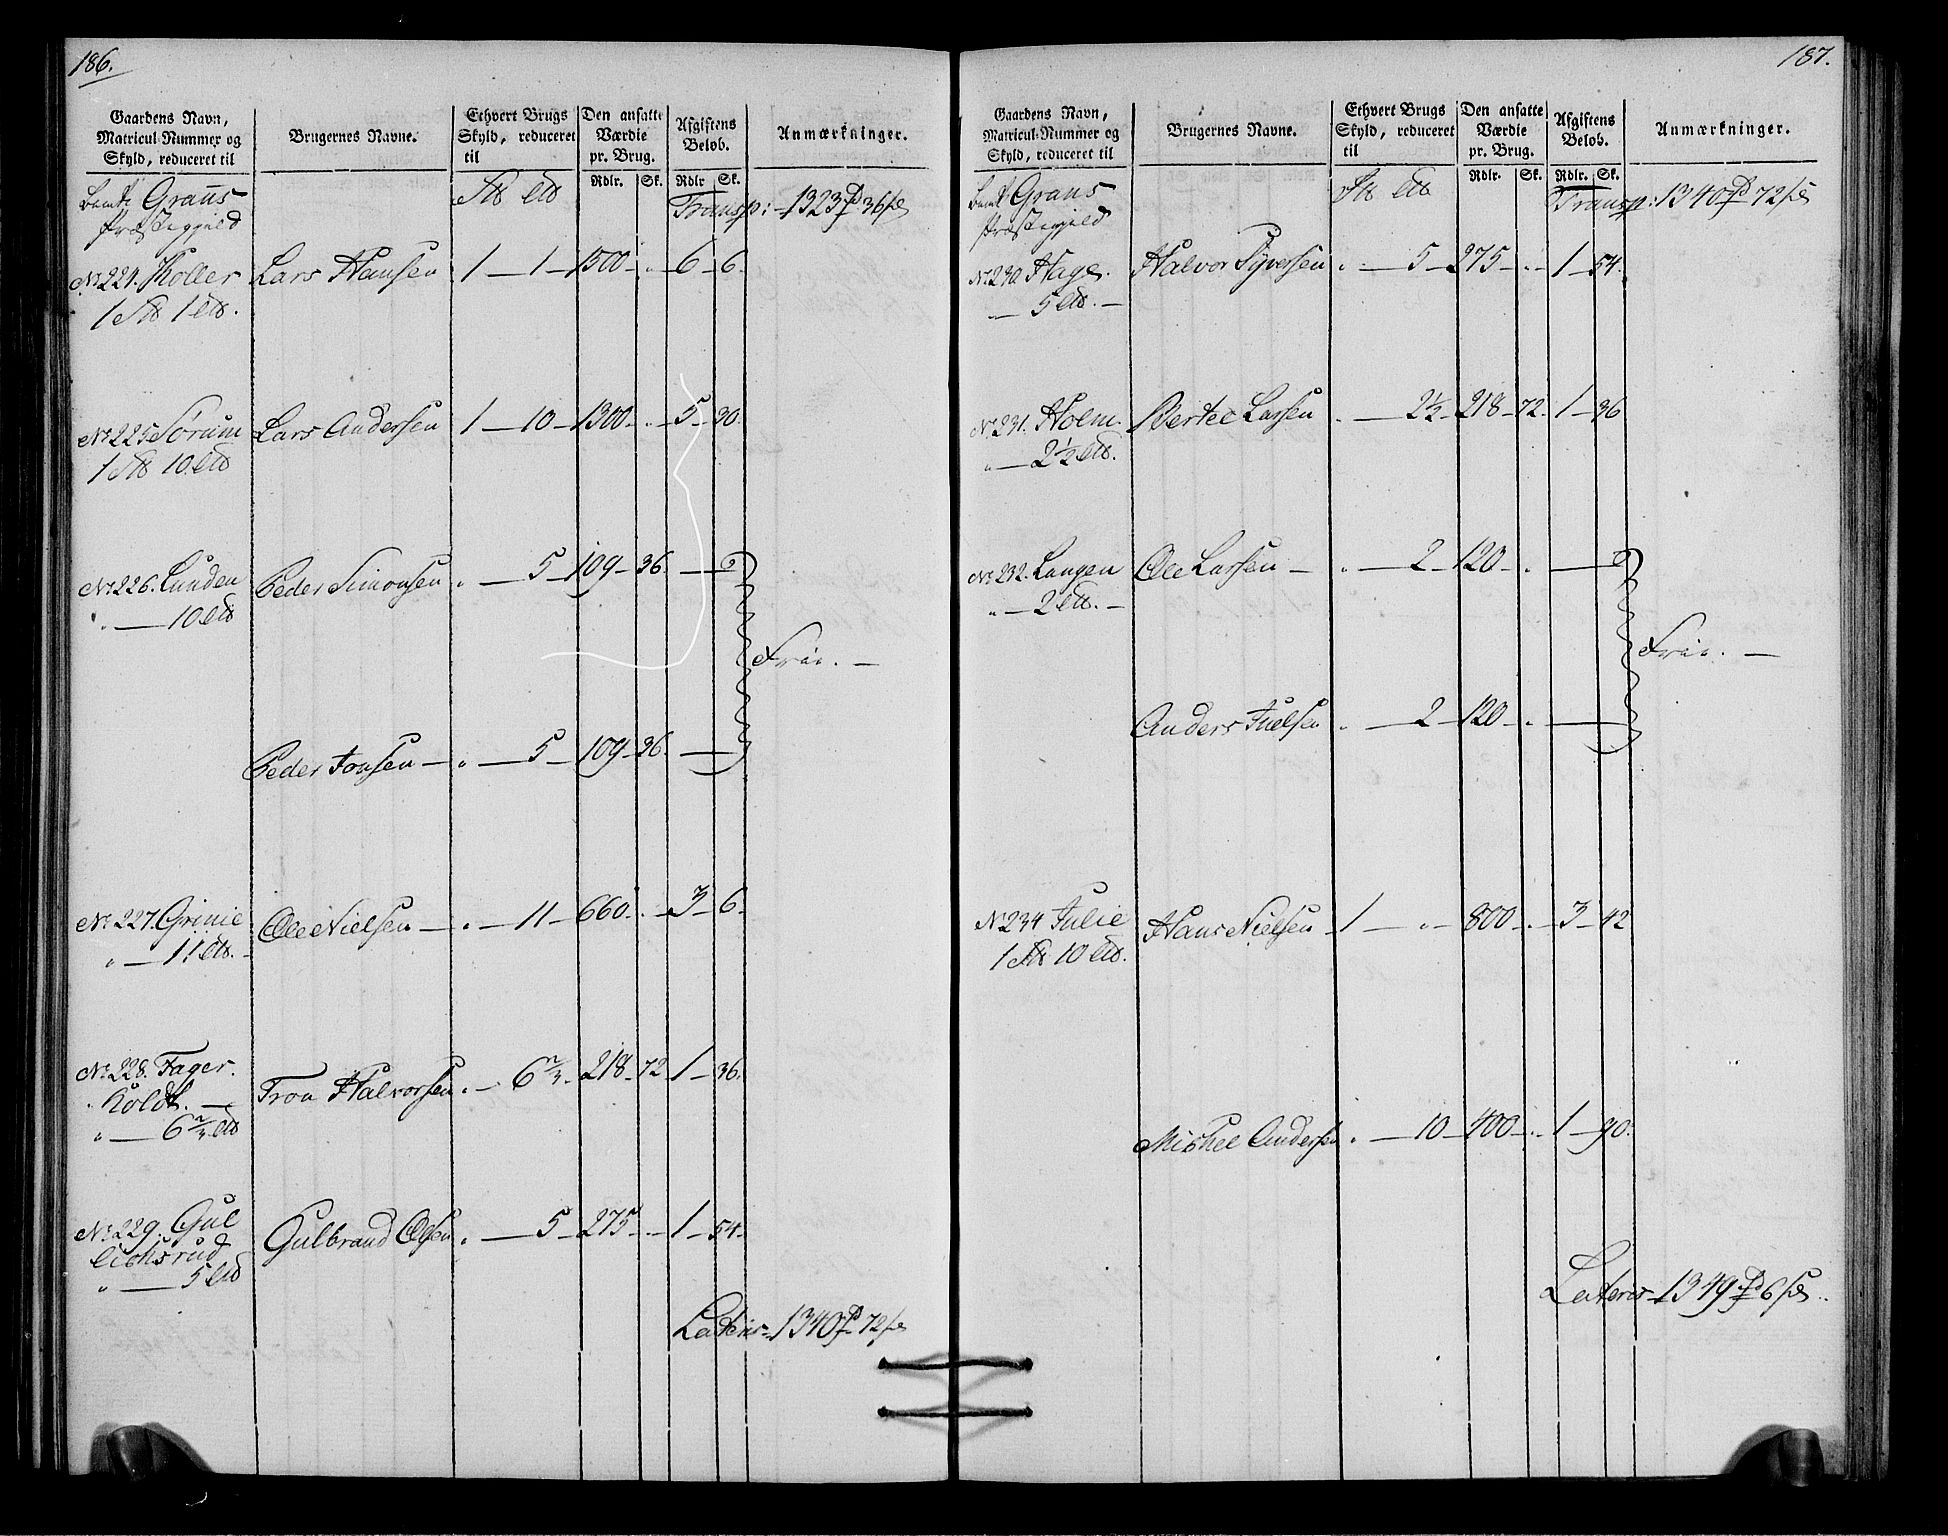 186.
Gaardens Navn, Matricul-Nummer og Skyld, reduceret til
Brugernes Navne.
Ethvert Brugs Skyld, reduceret til
Den ansatte Værdie pr. Brug.
Afgiftens Beløb.
Anmærkninger.
Rdlr. Sk. Rdlr Sk.
Grans Præstegjeld
Transp: 1323 36
No 224. Koller Lars Hansen 1 — 1 — 1500 — " — 6 — 6.
1 1
No 225 Sørum Lars Andersen 1 — 10 — 1300 — " — 5 — 30.
1 10
No 226. Lunden Peder Simonsen " — 5 — 109 — 36. —
" — 10
Frie. —
Peder Jonsen — " — 5 — 109 — 36. —
No 227. Grinie Ole Nielsen — " — 11 — 660 — " — 3 — 6.
" — 11
No 228. Fager- Tron Halvorsen " — 6 2/3 — 218 — 72 — 1 — 36.
" — 6 2/3
No 229. Gul Gulbrand Olsen " — 5 — 275 — " — 1 — 54.
lichsrud
" — 5
Lateris — 1340 72
187.
Gaardens Navn, Matricul-Nummer og Skyld, reduceret til
Brugernes Navne.
Ethvert Brugs Skyld, reduceret til
Den ansatte Værdie pr. Brug.
Afgiftens Beløb.
Anmærkninger.
Rdlr. Sk. Rdlr. Sk.
Grans Præstegjeld
Transp: 1340 72
No 230. Hage. Halvor Syversen " — 5 — 275 — " — 1 — 54.
— 5 —
No 231. Holm. Bertel Larsen " — 2½ — 218 — 72 — 1 — 36
" — 2½
No 232. Langen Ole Larsen — " — 2 — 120 — " —
" — 2 —
Frie. —
Anders Juelsen " — 2 — 120 — " —
No 234 Julie Hans Nielsen 1 — " — 800 — " — 3 — 42
1 10
Michel Andersen " — 10 — 400 — " — 1 — 90.
Lateris — 1349 6